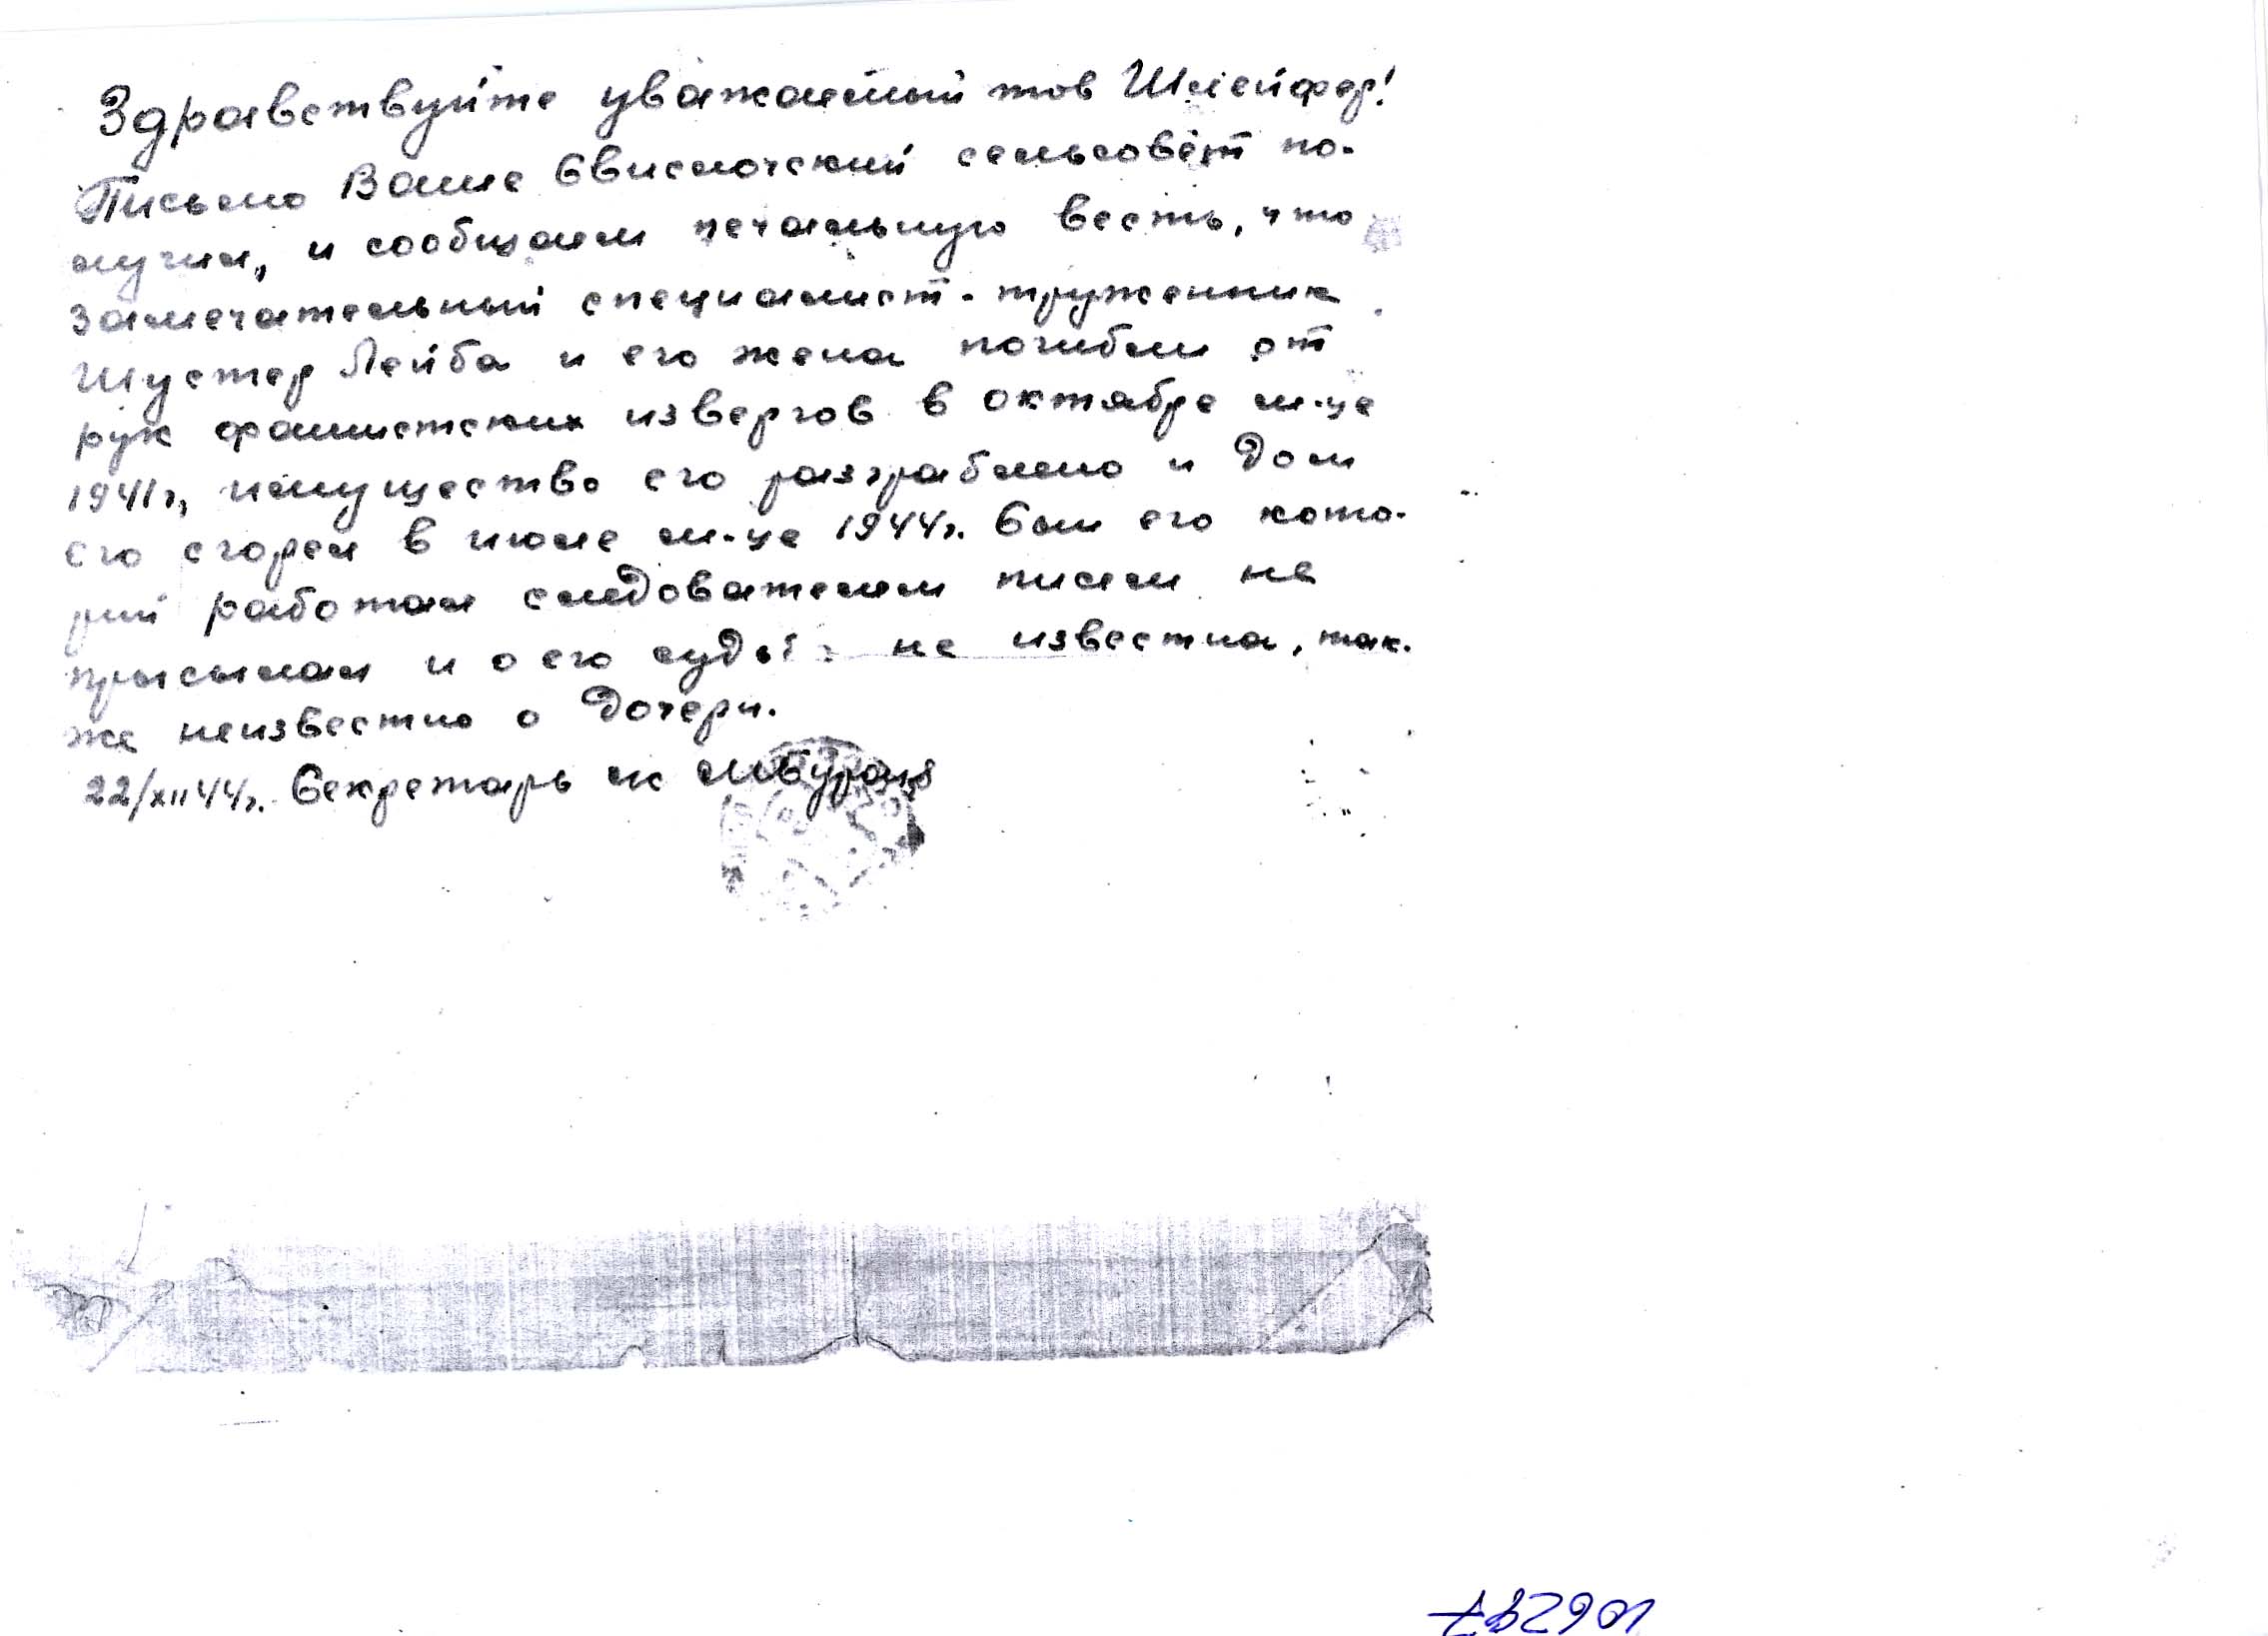 Здравствуйте уважаемый тов Шлейфер!
Письмо Ваше Свислочский сельсовет по-
лучил, и сообщаем печальную весть, что
замечательный специалист-труженник
Шустер Лейба и его жена погибли от
рук фашистских извергов в октябре м-це
1941г, имущество его разграблено и дом
его сгорел в июле м-це 1944г. Сын его кото-
рый работал следователем писем не
присылал и о его судьбе не известна, так-
же неизвестно о дочери.
22/XII 44г. Секретарь ск